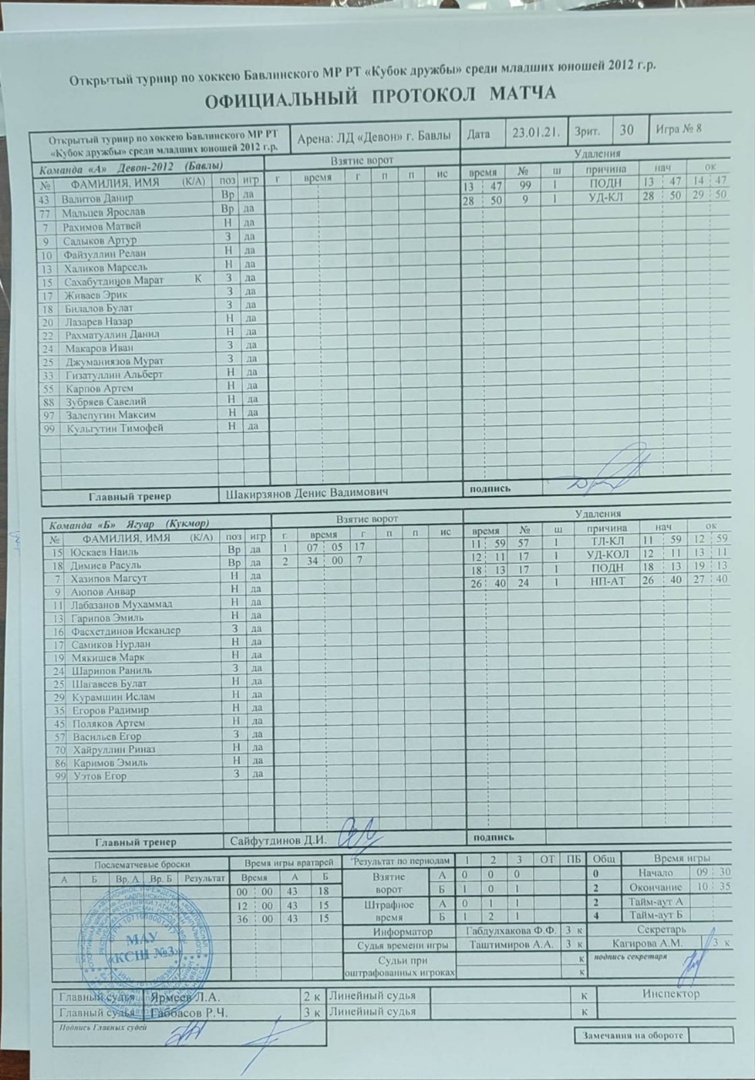 Открытый турнир по хоккею Бавлинского МР РТ «Кубок дружбы» среди младших юношей 2012 г.р.
ОФИЦИАЛЬНЫЙ ПРОТОКОЛ МАТЧА
Открытый турнир по хоккею Бавлинского МР РТ «Кубок дружбы» среди младших юношей 2012 г.р. Арена: ЛД «Девон» г. Бавлы Дата 23.01.21. Зрит. 30 Игра № 8
Команда «А» Девон-2012 (Бавлы) Взятие ворот Удаления
№ ФАМИЛИЯ, ИМЯ (К/А) поз игр г время г п п ис время № ш причина нач ок
43 Валитов Данир Вр да 13 47 99 1 ПОДН 13 47 14 47
77 Мальцев Ярослав Вр да 28 50 9 1 УД-КЛ 28 50 29 50
7 Рахимов Матвей Н да
9 Садыков Артур З да
10 Файзуллин Релан Н да
13 Халиков Марсель Н да
15 Сахабутдинов Марат К З да
17 Живаев Эрик З да
18 Билалов Булат З да
20 Лазарев Назар Н да
22 Рахматуллин Данил Н да
24 Макаров Иван З да
25 Джуманиязов Мурат З да
33 Гизатуллин Альберт Н да
55 Карпов Артем Н да
88 Зубряев Савелий Н да
97 Залепугин Максим Н да
99 Кульгутин Тимофей Н да
Главный тренер Шакирзянов Денис Вадимович подпись
Команда «Б» Ягуар (Кукмор) Взятие ворот Удаления
№ ФАМИЛИЯ, ИМЯ (К/А) поз игр г время г п п ис время № ш причина нач ок
15 Юскаев Наиль Вр да 1 07 05 17 11 59 57 1 ТЛ-КЛ 11 59 12 59
18 Димиев Расуль Вр да 2 34 00 7 12 11 17 1 УД-КОЛ 12 11 13 11
7 Хазипов Магсут Н да 18 13 17 1 ПОДН 18 13 19 13
9 Аюпов Анвар Н да 26 40 24 1 НП-АТ 26 40 27 40
11 Лабазанов Мухаммад Н да
13 Гарипов Эмиль Н да
16 Фасхетдинов Искандер З да
17 Самиков Нурлан Н да
19 Мякишев Марк Н да
24 Шарипов Раниль З да
25 Шагавеев Булат Н да
29 Курамшин Ислам Н да
35 Егоров Радимир Н да
45 Поляков Артем Н да
57 Васильев Егор З да
70 Хайруллин Риназ Н да
86 Каримов Эмиль Н да
99 Уэтов Егор З да
Главный тренер Сайфутдинов Д.И. подпись
Послематчевые броски Время игры вратарей Результат по периодам 1 2 3 ОТ ПБ Общ Время игры
А Б Вр. А Вр. Б Результат Время А Б Взятие ворот А 0 0 0 0 Начало 09 30
00 00 43 18 Б 1 0 1 2 Окончание 10 35
12 00 43 15 Штрафное время А 0 1 1 2 Тайм-аут А
36 00 43 15 Б 1 2 1 4 Тайм-аут Б
Информатор Габдулхакова Ф.Ф. 3 к Секретарь
Судья времени игры Таштимиров А.А. 3 к Кагирова А.М. 3 к
Судьи при оштрафованных игроках к к подпись секретаря
МАУ
«КСШ №3»
Главный судья Ярмеев Л.А. 2 к Линейный судья к Инспектор
Главный судья Габбасов Р.Ч. 3 к Линейный судья к
Подпись Главных судей
Замечания на обороте